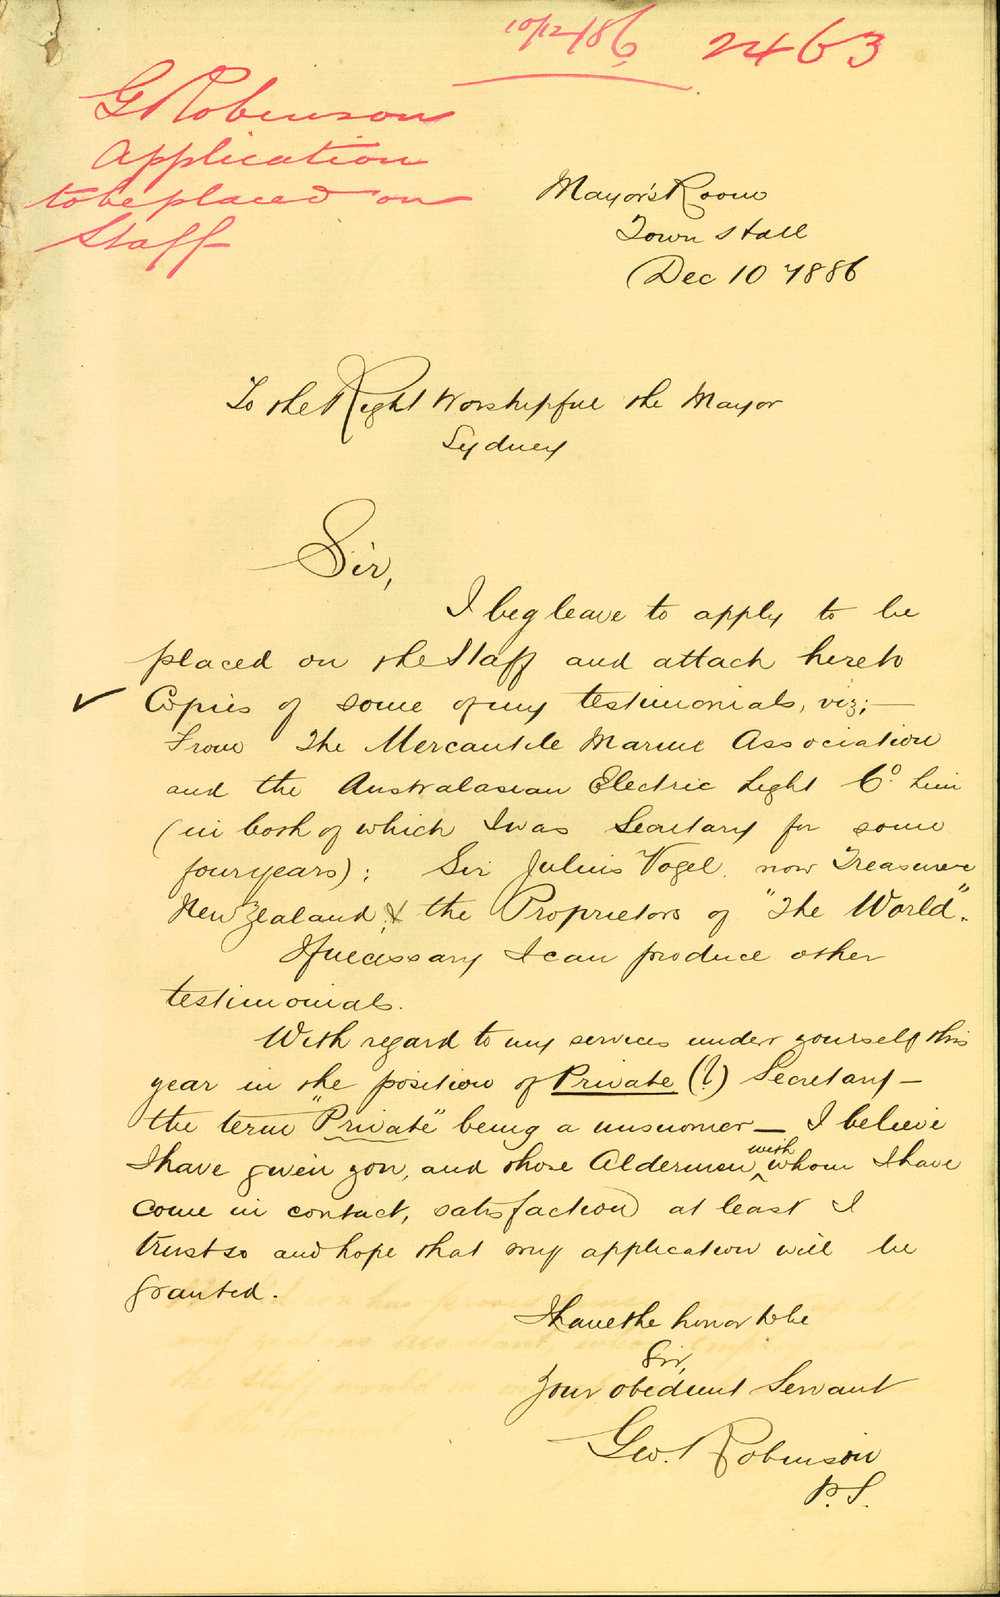 10/12/86 2463
G Robinson
Application
to be placed on
Staff
Mayor's Room
Town Hall
Dec 10 1886
To the Right Worshipful the Mayor
Sydney
Sir,
I beg leave to apply to be
placed on the Staff and attach hereto
✓ Copies of some of my testimonials, viz; —
From The Mercantile Marine Association
and the Australasian Electric Light Co. Lim
(in both of which I was Secretary for some
four years); Sir Julius Vogel, now Treasurer
New Zealand, & the Proprietors of "The World".
If necessary I can produce other
testimonials.
With regard to my services under yourself this
year in the position of Private (?) Secretary —
the term "Private" being a misnomer — I believe
I have given you, and those Aldermen with whom I have
come in contact, satisfaction at least I
trust so and hope that my application will be
granted.
I have the honor to be
Sir,
Your obedient Servant
Geo. Robinson
P.S.